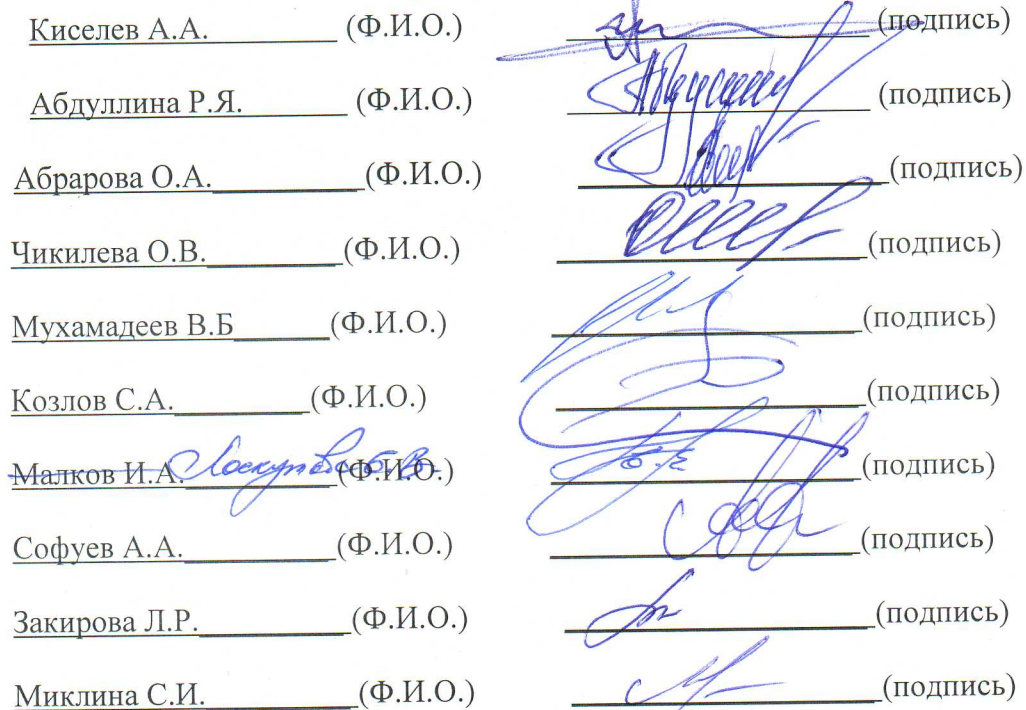 Киселев А.А. (Ф.И.О.) (подпись)
Абдуллина Р.Я. (Ф.И.О.) (подпись)
Абрарова О.А. (Ф.И.О.) (подпись)
Чикилева О.В. (Ф.И.О.) (подпись)
Мухамадеев В.Б (Ф.И.О.) (подпись)
Козлов С.А. (Ф.И.О.) (подпись)
Малков И.А. (Ф.И.О.) (подпись)
Софуев А.А. (Ф.И.О.) (подпись)
Закирова Л.Р. (Ф.И.О.) (подпись)
Миклина С.И. (Ф.И.О.) (подпись)